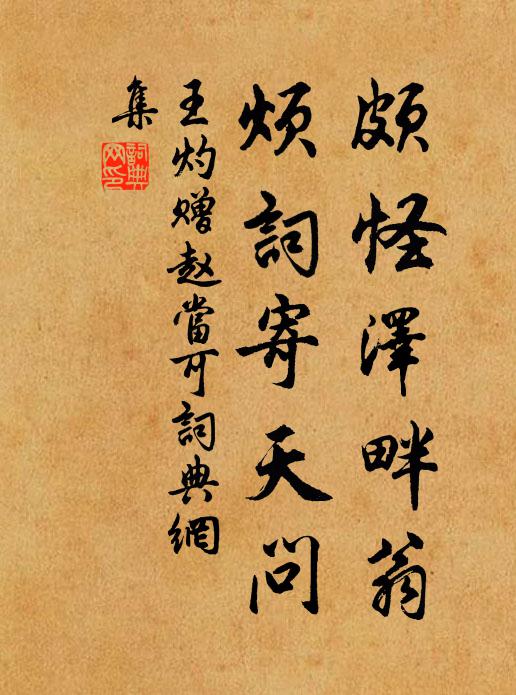 頗怪澤畔翁
煩詞寄天問
王灼赠赵當可詞典網
集
詞典
网印